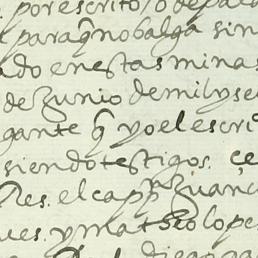 por escrito / o de pala
para q̃ no balga sin
ado en estas minas
de Junio de mil y se
gante q̃ yo el escri
siendo testigos. çe
es. el capp.ⁿ Juan
ues. y matheo lope
diego